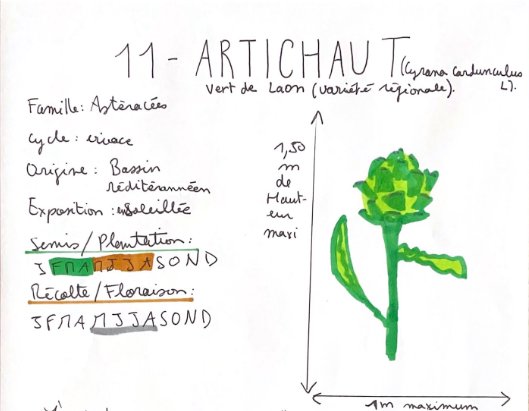 11 - ARTICHAUT (Cyrana Cardunculus L).
Vert de Laon (variété régionale).
Famille: Astéracées
Cycle: vivace
Origine: Bassin
méditérannéen
Exposition: ensoleillée
Semis/Plantation:
JFMAMJJASOND
Récolte/Floraison:
JFMAMJJASOND
1,50
m
de
Haut-
eur
maxi
1m maximum